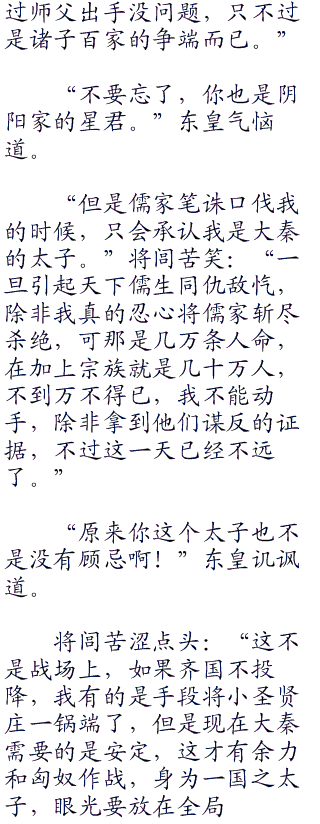 过师父出手没问题，只不过
是诸子百家的争端而已。”
“不要忘了，你也是阴
阳家的星君。”东皇气恼
道。
“但是儒家笔诛口伐我
的时候，只会承认我是大秦
的太子。”将闾苦笑：“一
旦引起天下儒生同仇敌忾，
除非我真的忍心将儒家斩尽
杀绝，可那是几万条人命，
在加上宗族就是几十万人，
不到万不得已，我不能动
手，除非拿到他们谋反的证
据，不过这一天已经不远
了。”
“原来你这个太子也不
是没有顾忌啊！”东皇讥讽
道。
将闾苦涩点头：“这不
是战场上，如果齐国不投
降，我有的是手段将小圣贤
庄一锅端了，但是现在大秦
需要的是安定，这才有余力
和匈奴作战，身为一国之太
子，眼光要放在全局